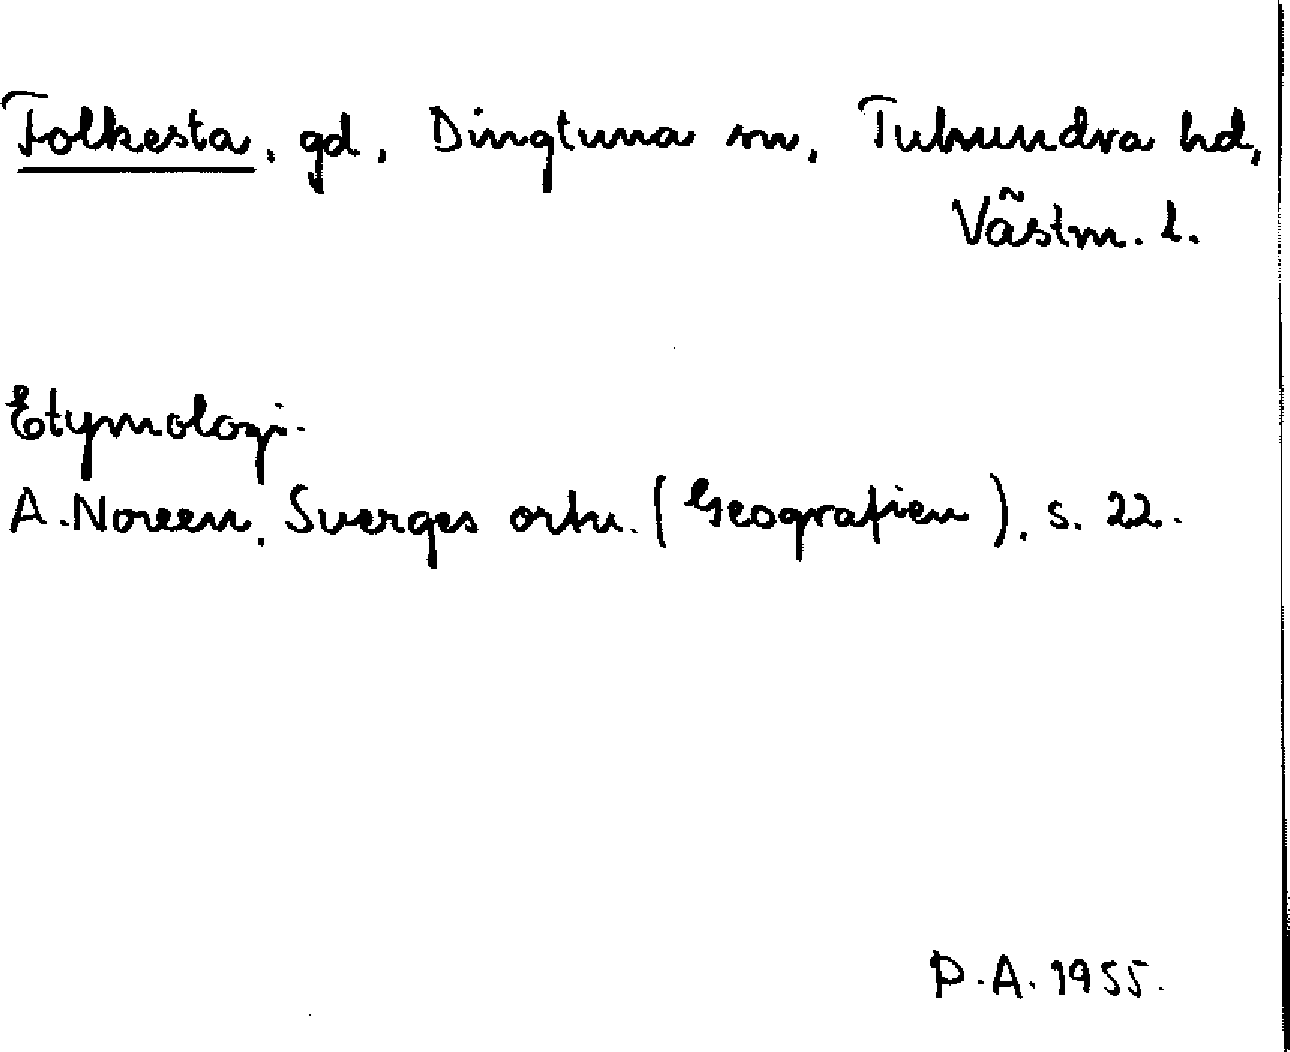 Folkesta, gd, Dingtuna sn, Tuhundra hd,
Västm. l.
Etymologi.
A. Noreen, Sverges ortn. (Geografien), s. 22.
P.A. 1955.